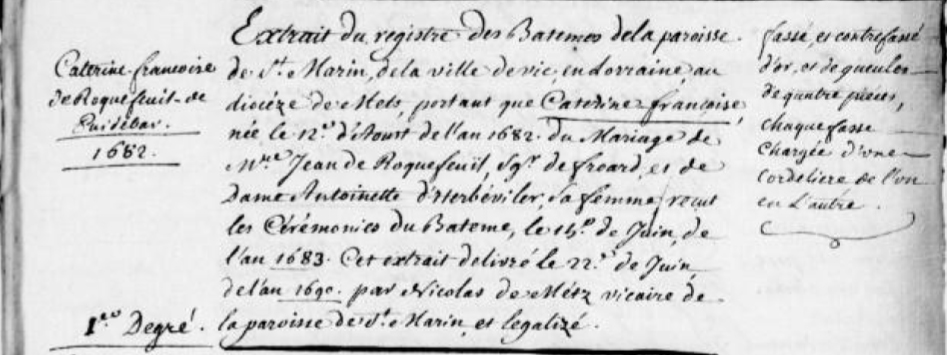 Caterine francoire
de Roquefeuil-de
Puidébar.
1682.
Extrait du registre des Batemes de la paroisse
de St. Marin, de la ville de vic, en lorraine au
diocéze de Mets, portant que Caterine françoise,
née le 12e. d'Aoust de l'an 1682. du Mariage de
Mre. Jean de Roquefeuil, Sgr. de froard, et de
Dame Antoinette d'Herbéviler, sa femme, reçut
les Cérémonies du Bateme, le 14e. de Juin, de
l'an 1683. Cet extrait delivré le 22e. de Juin
de l'an 1690. par Nicolas de Métz vicaire de
la paroisse de St. Marin, et legalizé.
fassé, et contrefassé
d'or, et de gueules
de quatre pièces,
chaque fasse
chargée d'une
cordeliere de l'un
en L'autre.
Ier. Degré.